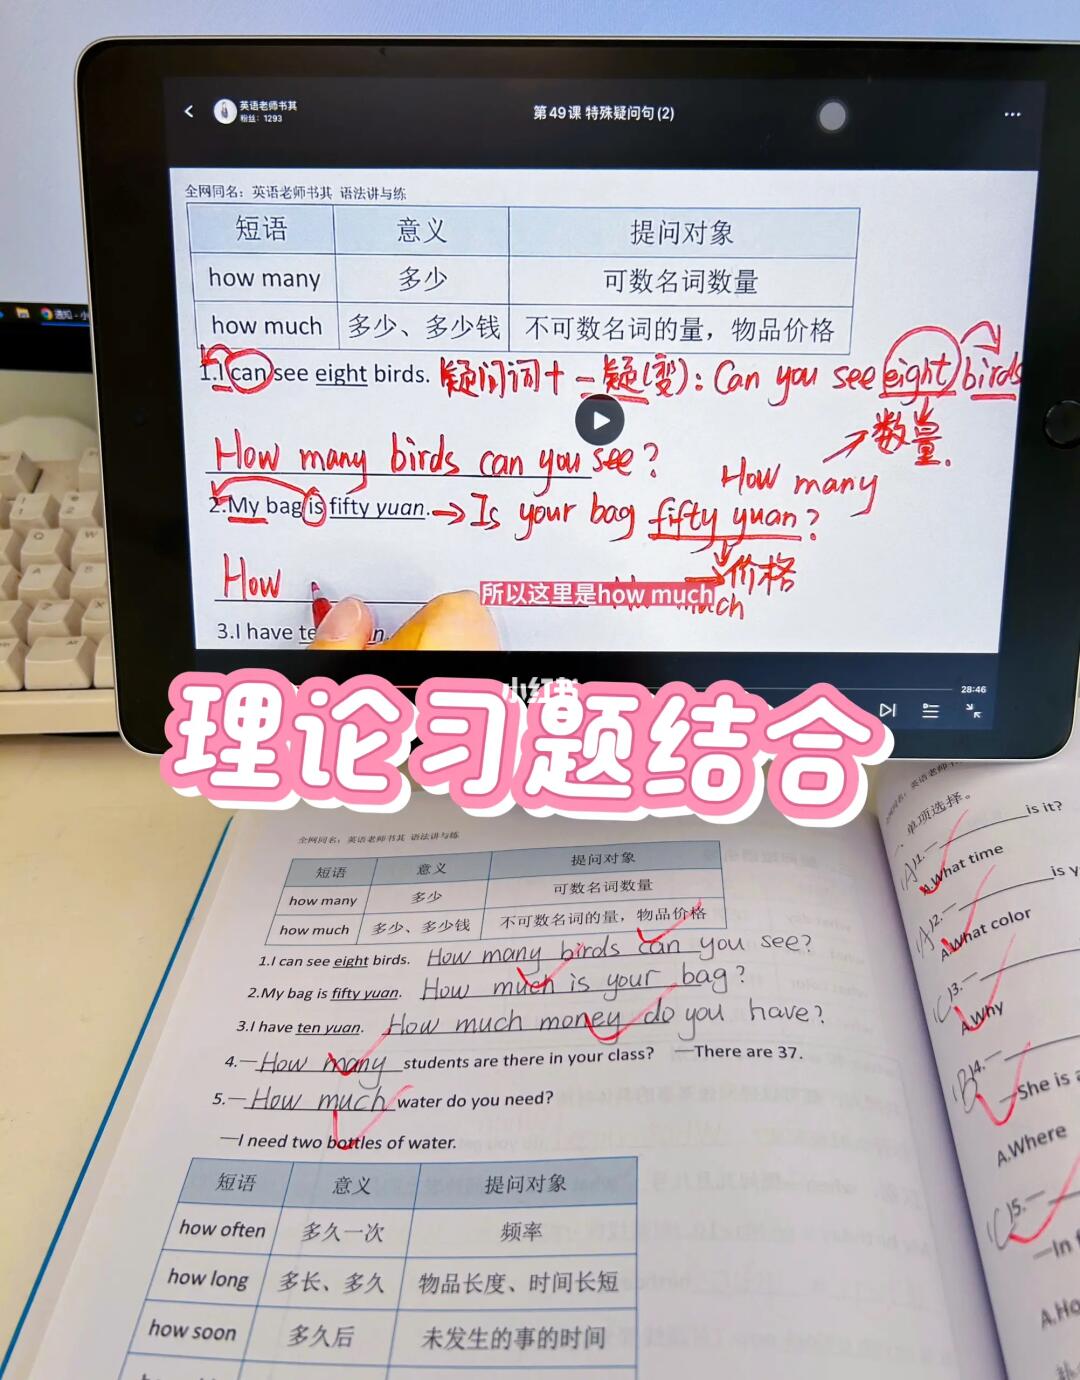 英语老师书其
粉丝：1293
第49课 特殊疑问句(2)
全网同名：英语老师书其 语法讲与练
短语 意义 提问对象
how many 多少 可数名词数量
how much 多少、多少钱 不可数名词的量，物品价格
1.I can see eight birds. 疑问词+一疑(变)：Can you see eight birds
数量.
How many birds can you see?
How many
2.My bag is fifty yuan. → Is your bag fifty yuan?
价格
How
所以这里是how much
3.I have te
28:46
小红书
理论习题结合
全网同名：英语老师书其 语法讲与练
短语 意义 提问对象
how many 多少 可数名词数量
how much 多少、多少钱 不可数名词的量，物品价格
1.I can see eight birds. How many birds can you see?
2.My bag is fifty yuan. How much is your bag?
3.I have ten yuan. How much money do you have?
4.—How many students are there in your class? —There are 37.
5.—How much water do you need?
—I need two bottles of water.
短语 意义 提问对象
how often 多久一次 频率
how long 多长、多久 物品长度、时间长短
how soon 多久后 未发生的事的时间
单项选择。
(A)1.— is it?
A.What time
(A)2.— is y
A.What color
(C)3.—
A.Why
(B)4.—
—She is a
A.Where
(C)5.—
—In
A.Ho